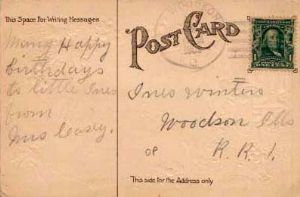 This Space for Writing Messages
POST CARD
Many Happy
Birthdays
to little Ines
from
Mrs Casey.
Ines Winters
Woodson Ills
R. R. 1.
This side for the Address only